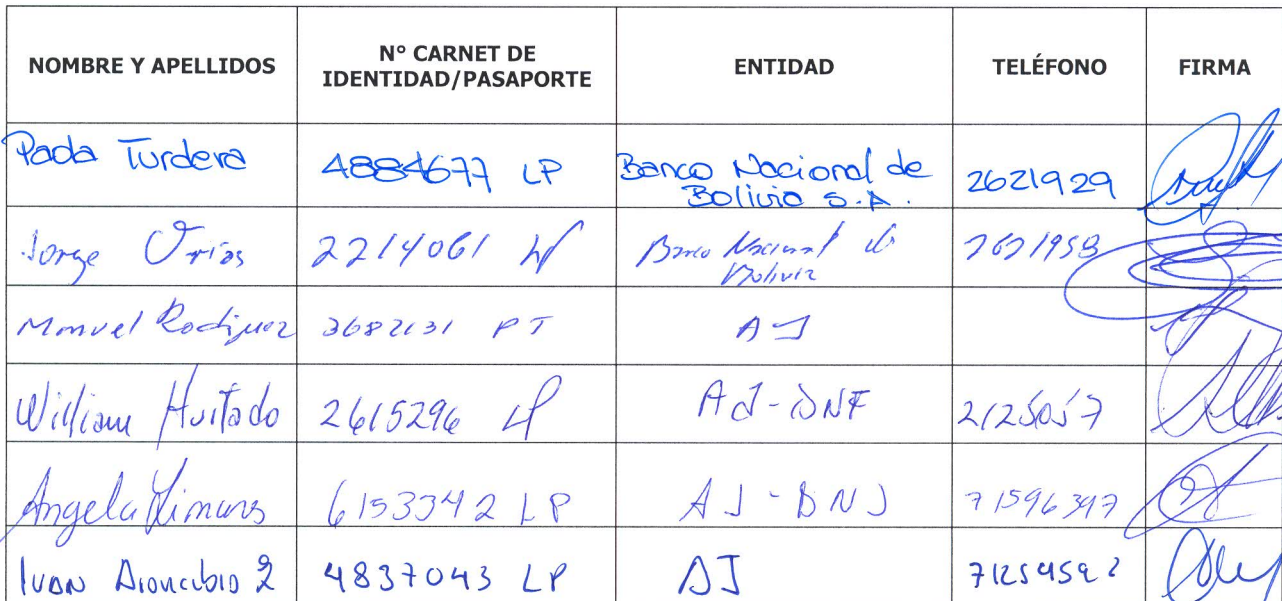 NOMBRE Y APELLIDOS
N° CARNET DE
IDENTIDAD/PASAPORTE
ENTIDAD
TELÉFONO
FIRMA
Paola Turdera
4884677 LP
Banco Nacional de
Bolivia S.A.
2621929
Jorge Urias
2214061 LP
Banco Nacional de
Bolivia
2621958
Manuel Rodriguez
3682131 PT
AJ
William Hurtado
2615296 LP
AJ-DNF
2125057
Angela
6153342 LP
AJ-DNJ
71596397
Ivan
4837043 LP
AJ